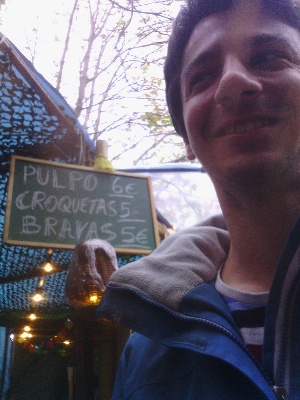 PULPO 6€
CROQUETAS 5.-
BRAVAS 5€